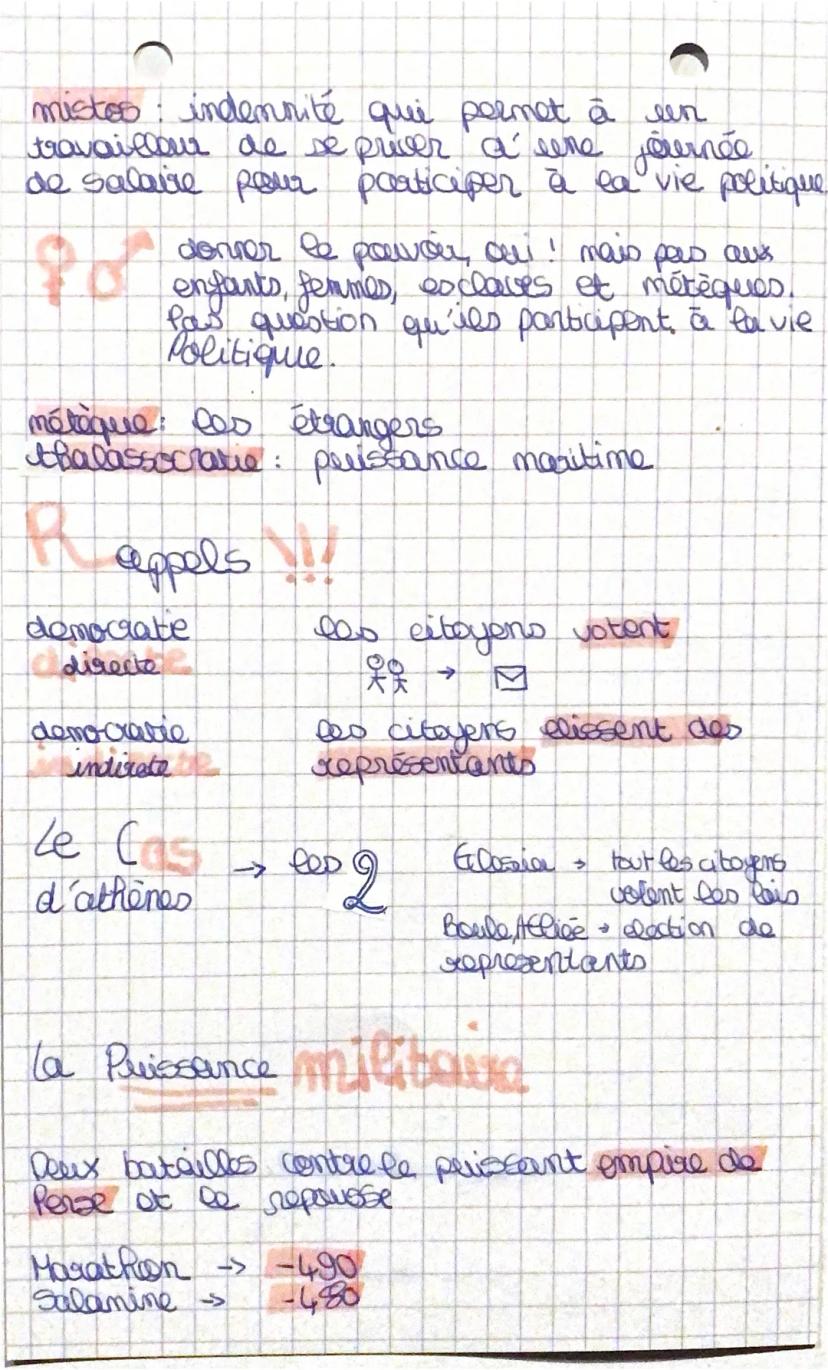 mistos : indemnité qui permet à un
travailleur de se priver d'une journée
de salaire pour participer à la vie politique
donner le pouvoir, oui ! mais pas aux
enfants, femmes, esclaves et métèques.
Pas question qu'ils participent à la vie
Politique.
métèque : les étrangers
thalassocratie : puissance maritime
Rappels !!!
democratie les citoyens votent
directe
democratie les citoyens elissent des
indirete représentants
Le Cas
d'athènes → les 2
→ tout les citoyens
votent les lois
Boule, → election de
representants
La Puissance militaire
Deux batailles contre le puissant empire de
Perse et le repousse
Marathon → -490
Salamine → -480